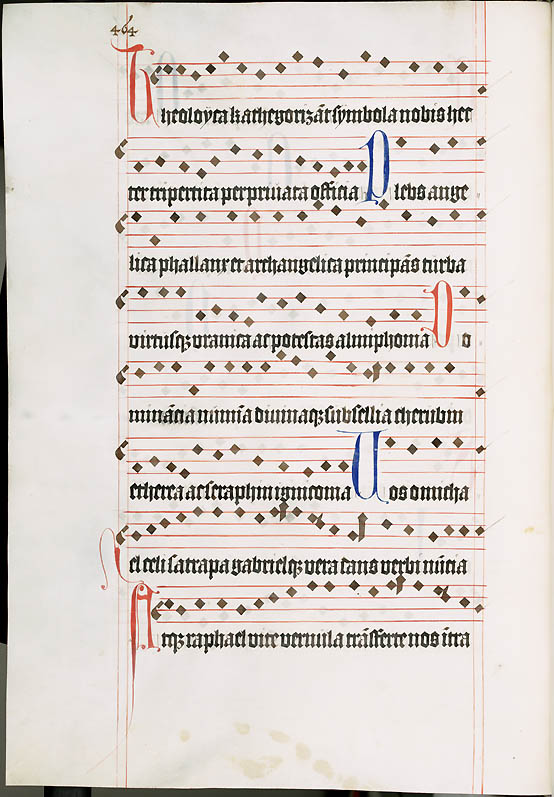 464
Theoloyca kathegorizāt symbola nobis hec
ter tripertita per priuata officia Plebs ange
lica phallanx et archangelica principās turba
virtusqꝫ vranica ac potestas almiphonia Do
minācia numīa diuinaqꝫ subsellia cherubin
etherea ac seraphin ignicoma Uos o micha
el celi satrapa gabrielqꝫ vera dans verbi nūcia
Atqꝫ raphael vite vernula trāsferte nos ītra